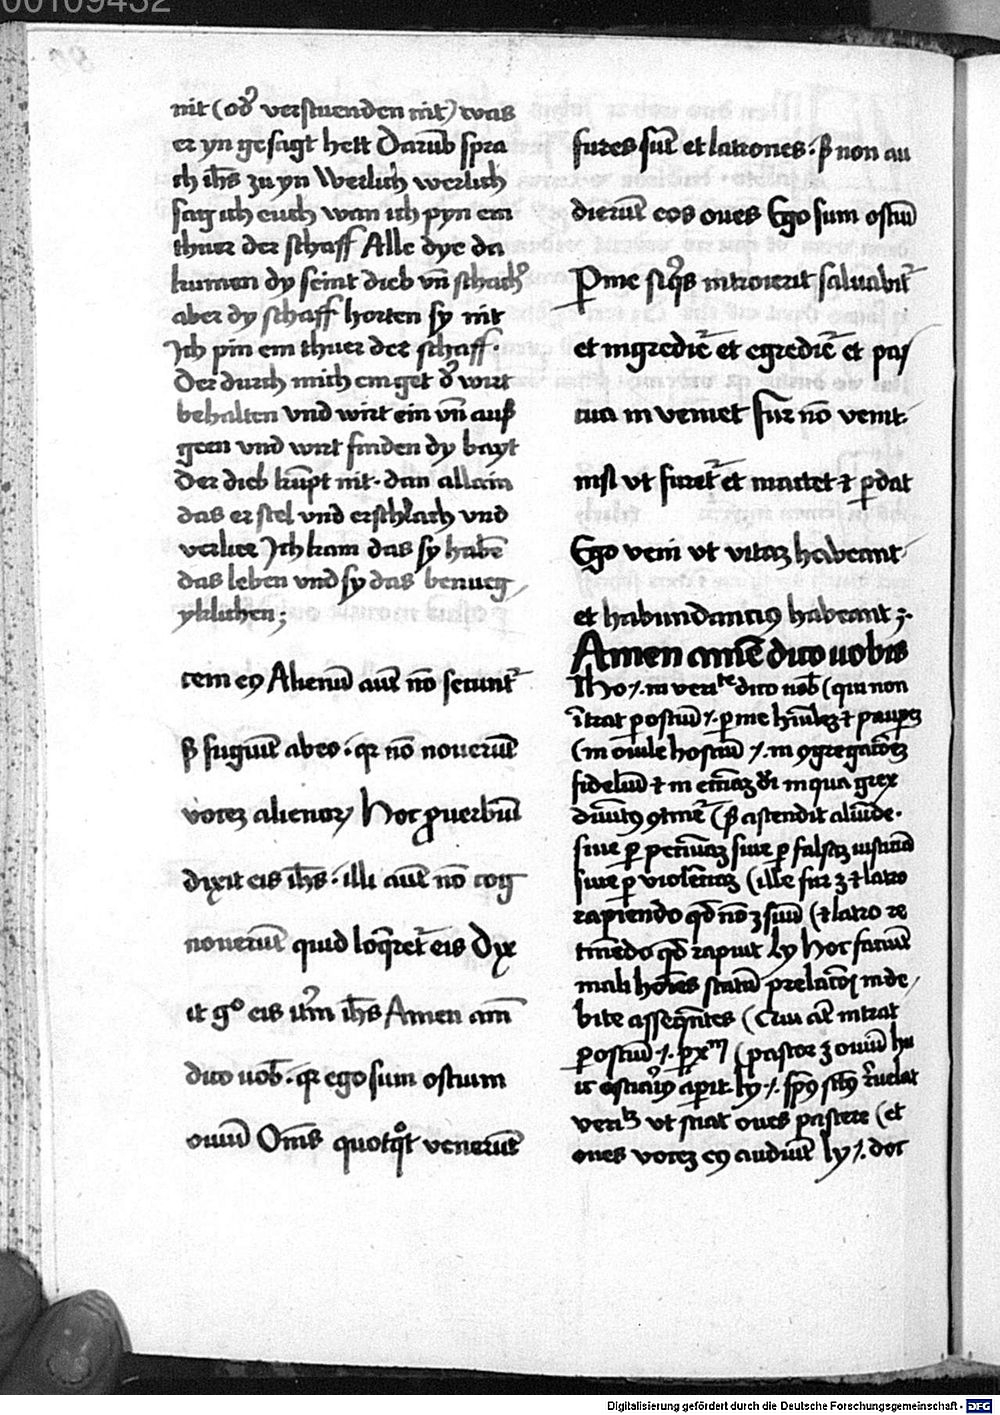 00109432
nit (od᷒ verstuenden nit) was
er yn gesagt hett Darūb spra
ch ih̄s zu yn Werlich werlich
sag ich euch wan ich pyn ein
thuer der schaff Alle dye da
kumen dy seint dieb vn̄ schach᷒
aber dy schaff horten sy nit
Ich pin ein thuer der schaff·
Der durch mich einget d᷒ wirt
behalten vnd wirt ein vn̄ auß
geen vnd wirt finden dy wayt
Der dieb kūpt nit· dan allain
das er stel vnd erschlach vnd
verlier Ich kam das sy habē
das leben vnd sy das benueg
yklichen;
cem eꝯ Alienū autē nō secunt᷒
sꝫ fugiūt ab eo· qꝛ nō noverūt
vocez alienorꝝ Hoc ꝓuerbiū
dixit eis ih̄s· illi autē nō cog
noverūt quid loq̄ret᷒ eis Dix
it gº eis itm̄ ih̄s Amen am̄
dico vob̄· qꝛ ego sum ostium
ouiū Om̄s quotqͦt venerūt
fures sūt et latrones· sꝫ non au
dierūt eos oues Ego sum ostiū
P me siq̄s introierit saluabit᷒
et ingrediet᷒ et egrediet᷒ et pas
cua in veniet fur nō venit
nisi vt furet᷒ et mactet ⁊ ꝑdat
Ego veni vt vitaz habeant
et habundanciꝯ habeant ;·
Amen amē dico uobis
in verite dico vob̄ (qui non
ītrat ꝑ ostiū
(in ouile
fideliū ⁊ in
siue ꝑ siue ꝑ falsaz
siue ꝑ violēciaz (ille fur ꝫ ⁊ latro
rapiendo qd̄ nō ꝫ suū (⁊ latro re
tinēdo qd̄ rapuit ly Hoc faciūt
mali hoīes statū
bite asseq̄ntes (Cui aūt intrat
ꝑ ostiū (pastor ꝫ ouiū hu
ic ostiariꝯ aperit ly
vt sciat oues pascere (et
oues vocez eꝯ audiūt ly doc
Digitalisierung gefördert durch die Deutsche Forschungsgemeinschaft - DFG